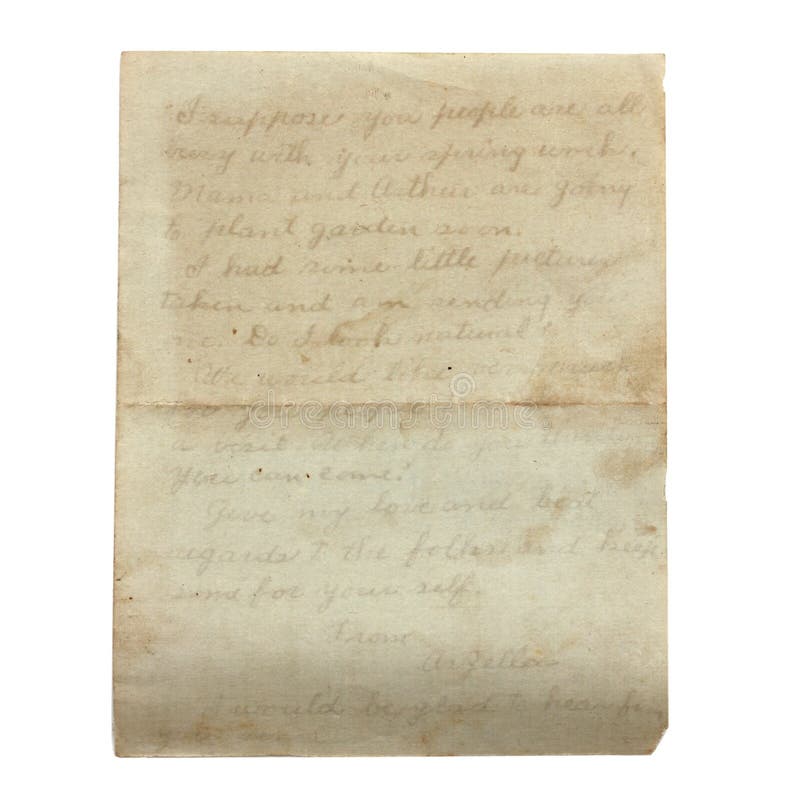 I suppose you people are all
busy with your spring work.
Mama and Arthur are going
to plant garden soon.
I had some little pictures
taken and am sending you
one. Do I look natural?
We would like very much
for you
a visit. When do you think
you can come?
Give my love and best
regards to the folks and keep
some for your self.
From
ArZella
I would be glad to hear from
you soon.
dreamstime